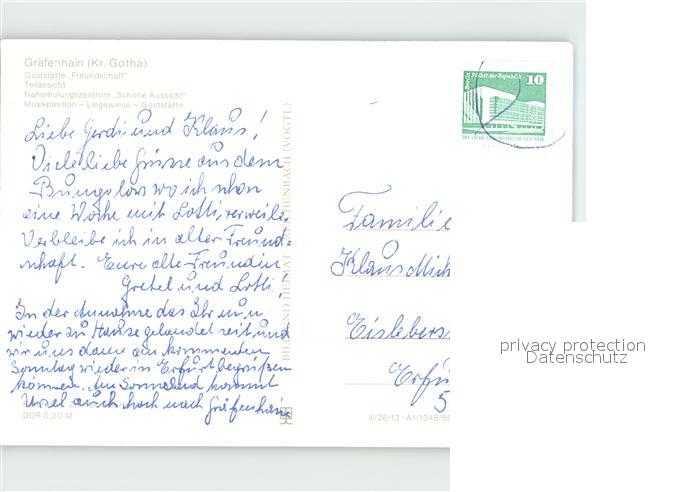 Gräfenhain (Kr. Gotha)
Gaststätte „Freundschaft"
Teilansicht
Naherholungszentrum „Schöne Aussicht"
Musikpavillon – Liegewiese – Gaststätte
Liebe Gerdi und Klaus!
Viele liebe Grüsse aus dem
Bungalow wo ich schon
eine Woche mit Lotti, verweile.
Verbleibe ich in alter Freund-
schaft. Eure alte Freundin
Gretel und Lotti
In der Annahme das Ihr nun
wieder zu Hause gelandet seit und
wir uns dann am kommenden
Sonntag wieder in Erfurt begrüßen
können. Am Sonnabend kommt
Ursel auch hoch nach Gräfenhain
DDR 0,20 M
BILD UND HEIMAT REICHENBACH (VOGTL)
Berlin Palast der Republik 10
DEUTSCHE DEMOKRATISCHE REPUBLIK
Familie
Klaus Mich
Eislebers
Erfu
5
III/26/13 · A1/1348/86
privacy protection
Datenschutz